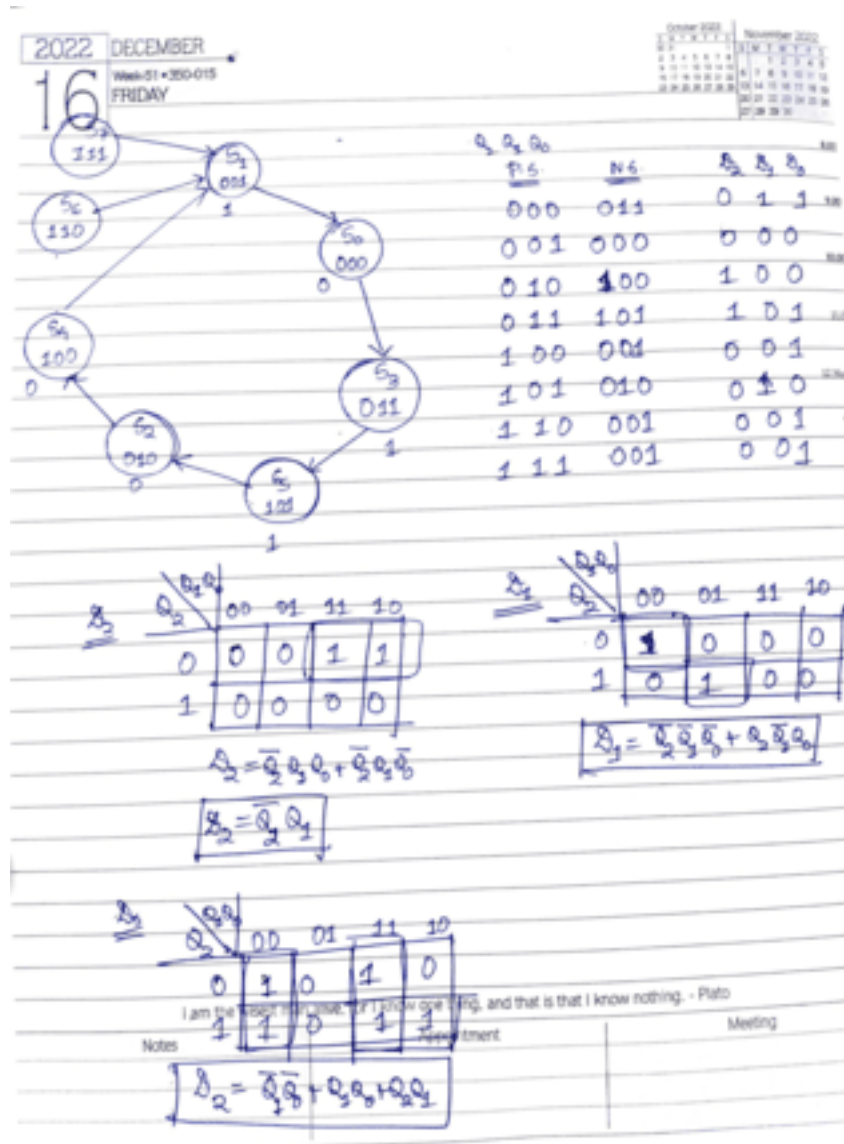 2022 DECEMBER
16 Week-51 • 350-015
FRIDAY
October 2022
November 2022
S7
111
S1
001
1
S6
110
S0
000
0
S4
100
0
S3
011
1
S2
010
0
S5
101
1
Q2 Q1 Q0
P.S. N.S. D2 D1 D0
000 011 0 1 1
001 000 0 0 0
010 100 1 0 0
011 101 1 0 1
100 001 0 0 1
101 010 0 1 0
110 001 0 0 1
111 001 0 0 1
D2 Q2 Q1Q0 00 01 11 10
0 0 0 1 1
1 0 0 0 0
D2 = Q̅2 Q1 Q0 + Q̅2 Q1 Q̅0
D2 = Q̅2 Q1
D1 Q2 Q1Q0 00 01 11 10
0 1 0 0 0
1 0 1 0 0
D1 = Q̅2 Q̅1 Q̅0 + Q2 Q̅1 Q0
Q2 Q1Q0 00 01 11 10
0 1 0 1 0
1 1 0 1 1
D2 = Q̅1 Q̅0 + Q1 Q0 + Q2 Q1
I am the wisest man alive, for I know one thing, and that is that I know nothing. - Plato
Notes Appointment Meeting